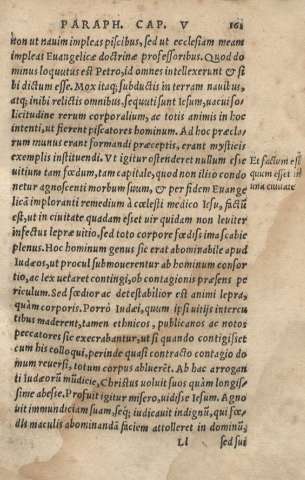 PARAPH. CAP. V 161
non ut nauim impleas piscibus, sed ut ecclesiam meam
impleas Euangelicæ doctrinæ professoribus. Quod do
minus loquutus est Petro, id omnes intellexerunt & si
bi dictum esse. Mox itaq; subductis in terram nauibus,
atq; inibi relictis omnibus, sequuti sunt Iesum, uacui so-
licitudine rerum corporalium, ac totis animis in hoc
intenti, ut fierent piscatores hominum. Ad hoc præcla-
rum munus erant formandi præceptis, erant mysticis
exemplis instituendi. Vt igitur ostenderet nullum esse
uitium tam fœdum, tam capitale, quod non ilico condo
netur agnoscenti morbum suum, & per fidem Euange
licā imploranti remedium à cœlesti medico Iesu, fictū
est, ut in ciuitate quadam esset uir quidam non leuiter
infectus lepræ uitio, sed toto corpore fœdissima scabie
plenus. Hoc hominum genus sic erat abominabile apud
Iudæos, ut procul submouerentur ab hominum consor
tio, ac lex uetaret contingi, ob contagionis præsens pe
riculum. Sed fœdior ac detestabilior est animi lepra,
quàm corporis. Porrò Iudæi, quum ipsi uitijs intercu
tibus maderent, tamen ethnicos, publicanos ac notos
peccatores sic execrabantur, ut si quando contigisset
cum his colloqui, perinde quasi contracto contagio do
mum reuersi, totum corpus abluerēt. Ab hac arrogan
ti Iudæorū mūdicie, Christus uoluit suos quàm longis-
sime abesse. Profuit igitur misero, uidisse Iesum. Agno
uit immundiciam suam, seq; iudicauit indignū, qui fœ-
dis maculis abominandā faciem attolleret in dominū,
Ll sed sui
Et factum est
quum esset in
una ciuitate